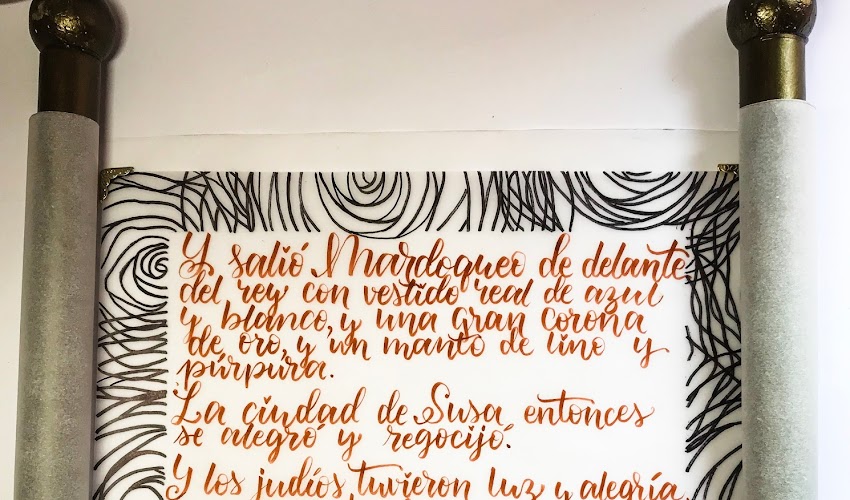 Y salió Mardoqueo de delante
del rey con vestido real de azul
y blanco, y una gran corona
de oro, y un manto de lino y
púrpura.
La ciudad de Susa entonces
se alegró y regocijó.
Y los judíos tuvieron luz y alegría,